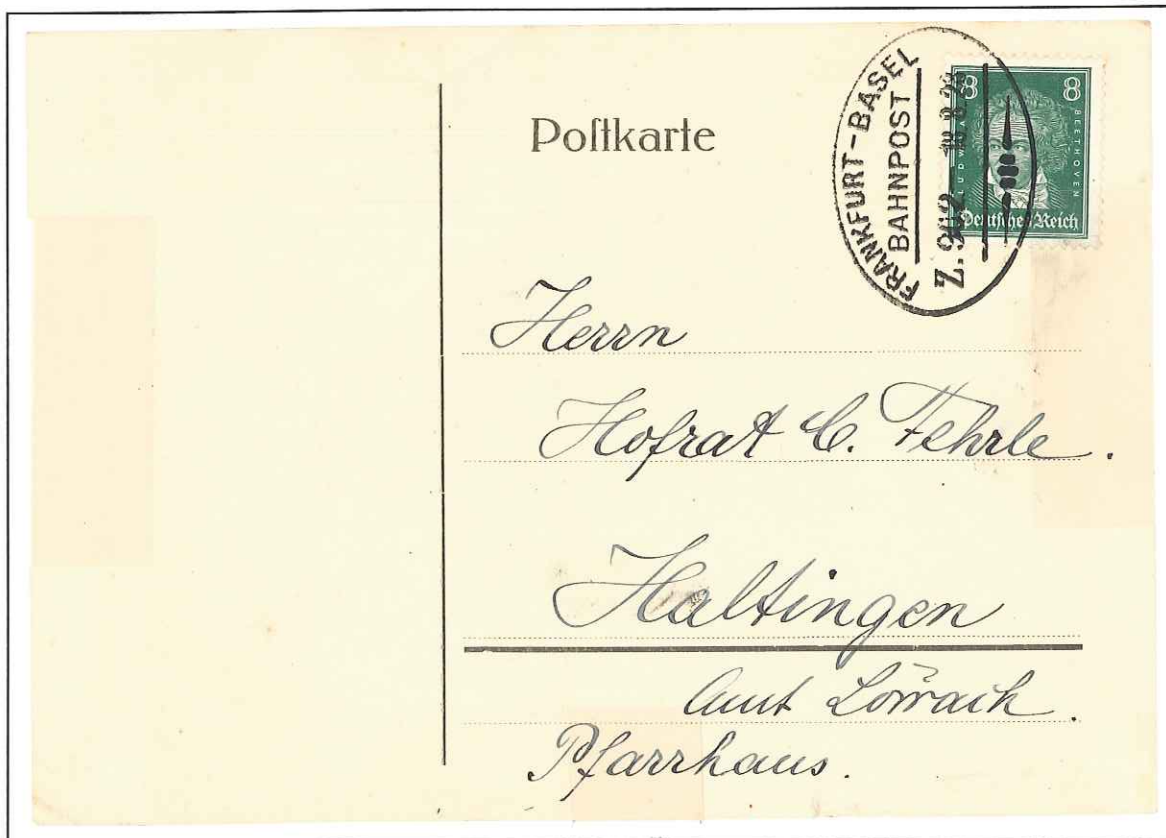 Poſtkarte
FRANKFURT-BASEL
BAHNPOST
Z. 902
8 8
LUDWIG VAN BEETHOVEN
Deutsches Reich
Herrn
Hofrat C. Fehrle.
Haltingen
Amt Lörrach.
Pfarrhaus.